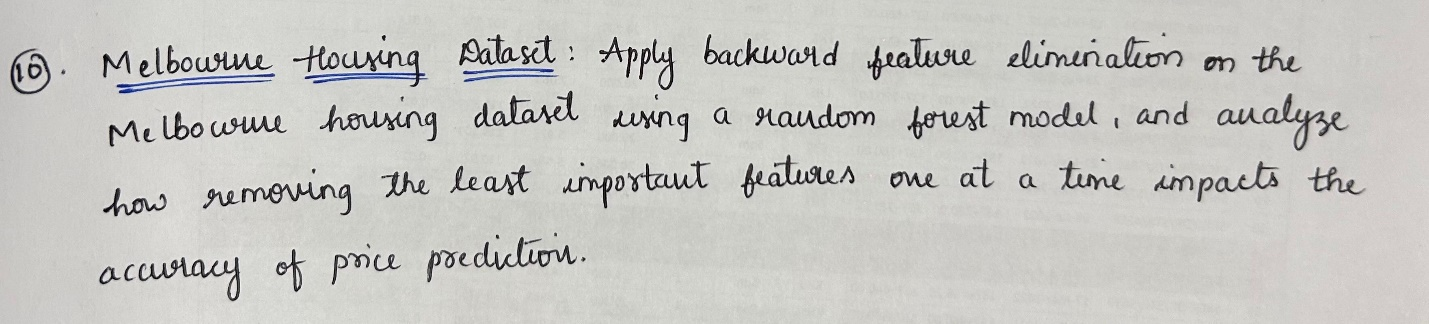 10. Melbourne Housing Dataset: Apply backward feature elimination on the
Melbourne housing dataset using a random forest model, and analyze
how removing the least important features one at a time impacts the
accuracy of price prediction.